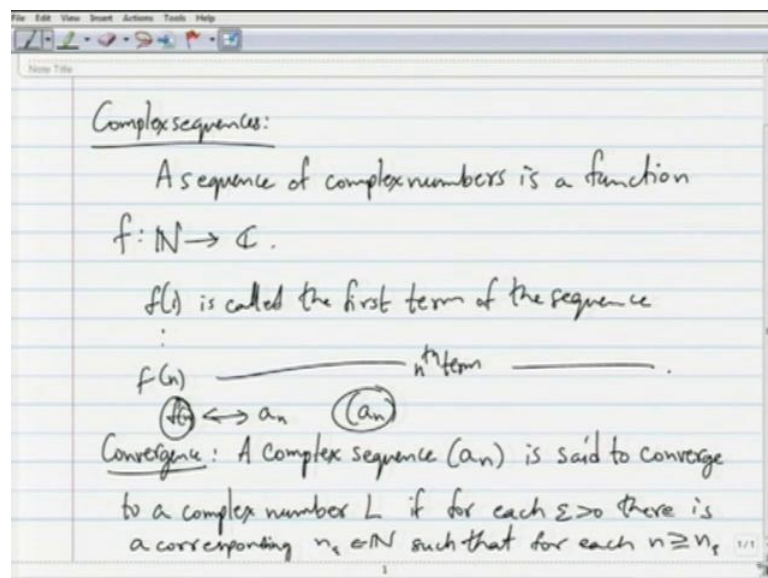 File Edit View Insert Actions Tools Help
Note Title
Complex sequences:
A sequence of complex numbers is a function
f: ℕ → ℂ.
f(1) is called the first term of the sequence
⋮
f(n) ——— nth term ———.
f(n) ↔ aₙ (aₙ)
Convergence: A complex sequence (aₙ) is said to converge
to a complex number L if for each ε>0 there is
a corresponding n_ε ∈ ℕ such that for each n ≥ n_ε
1/1
1